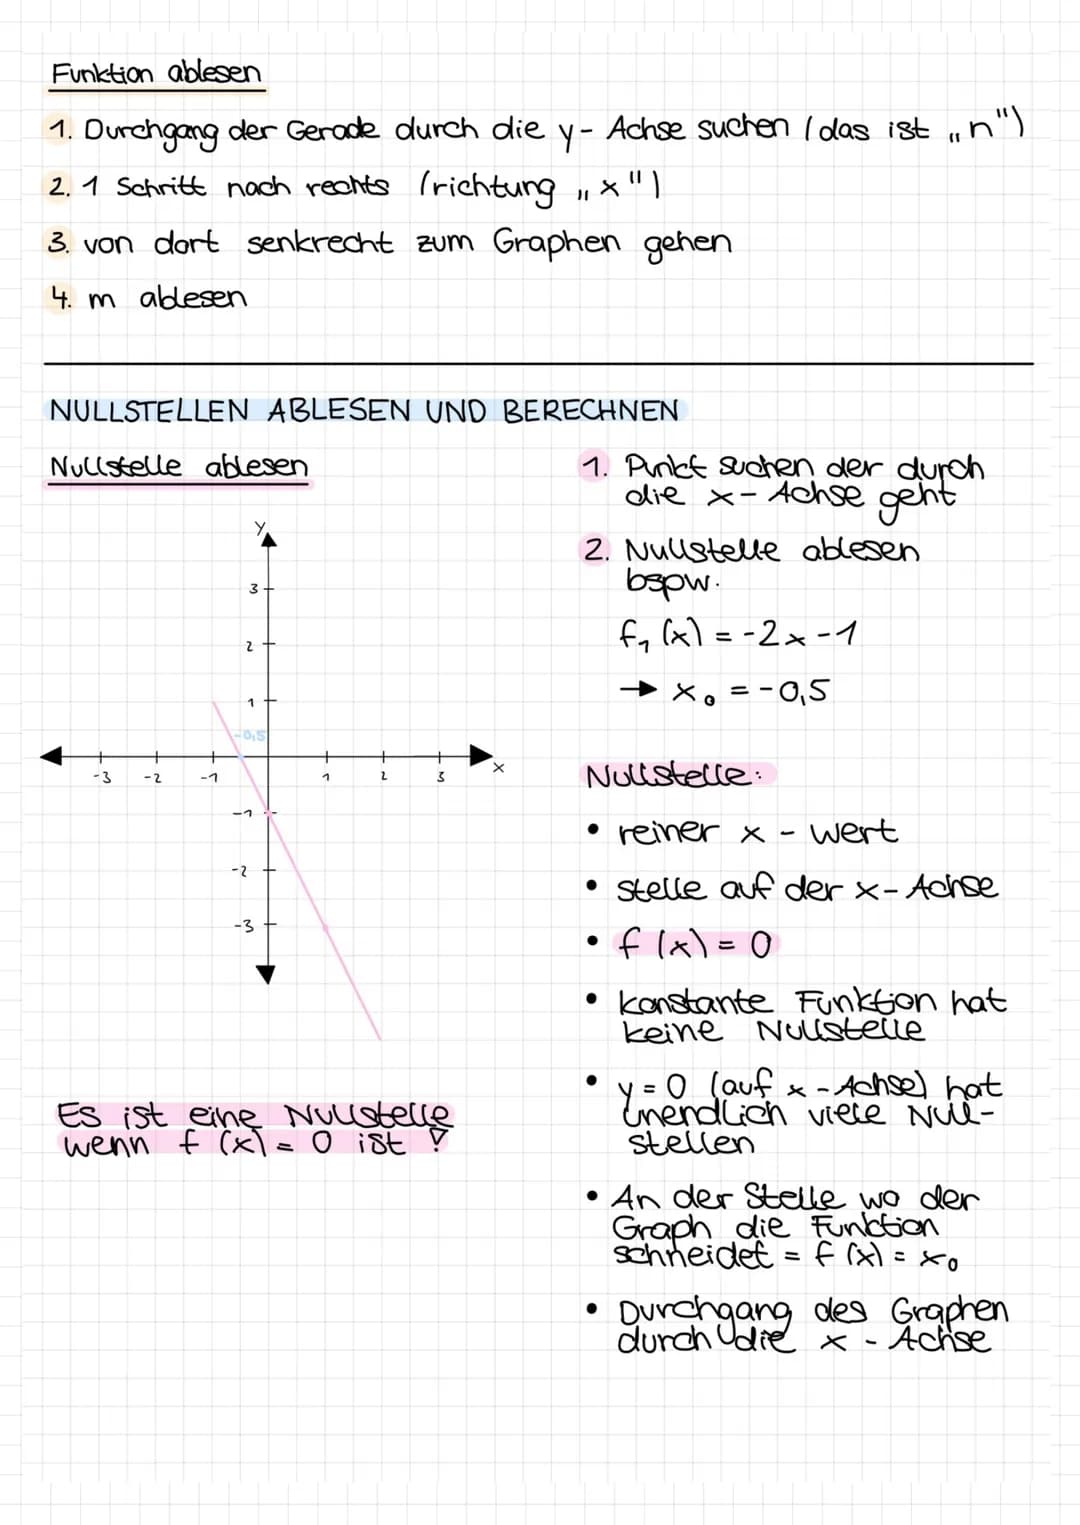 Funktion ablesen
1. Durchgang der Gerade durch die y- Achse suchen (das ist „n")
2. 1 Schritt nach rechts (richtung „x")
3. von dort senkrecht zum Graphen gehen
4. m ablesen
NULLSTELLEN ABLESEN UND BERECHNEN
Nullstelle ablesen
y
3
2
1
-0,5
-3 -2 -1 1 2 3 x
-1
-2
-3
Es ist eine Nullstelle
wenn f(x) = 0 ist !
1. Punkt suchen der durch
die x- Achse geht
2. Nullstelle ablesen
bspw.
f₁(x) = -2x-1
→ x₀ = -0,5
Nullstelle:
• reiner x - wert
• stelle auf der x- Achse
• f(x) = 0
• konstante Funktion hat
keine Nullstelle
• y = 0 (auf x - Achse) hat
unendlich viele Null-
stellen
• An der Stelle wo der
Graph die Funktion
schneidet = f(x) = x₀
• Durchgang des Graphen
durch die x - Achse